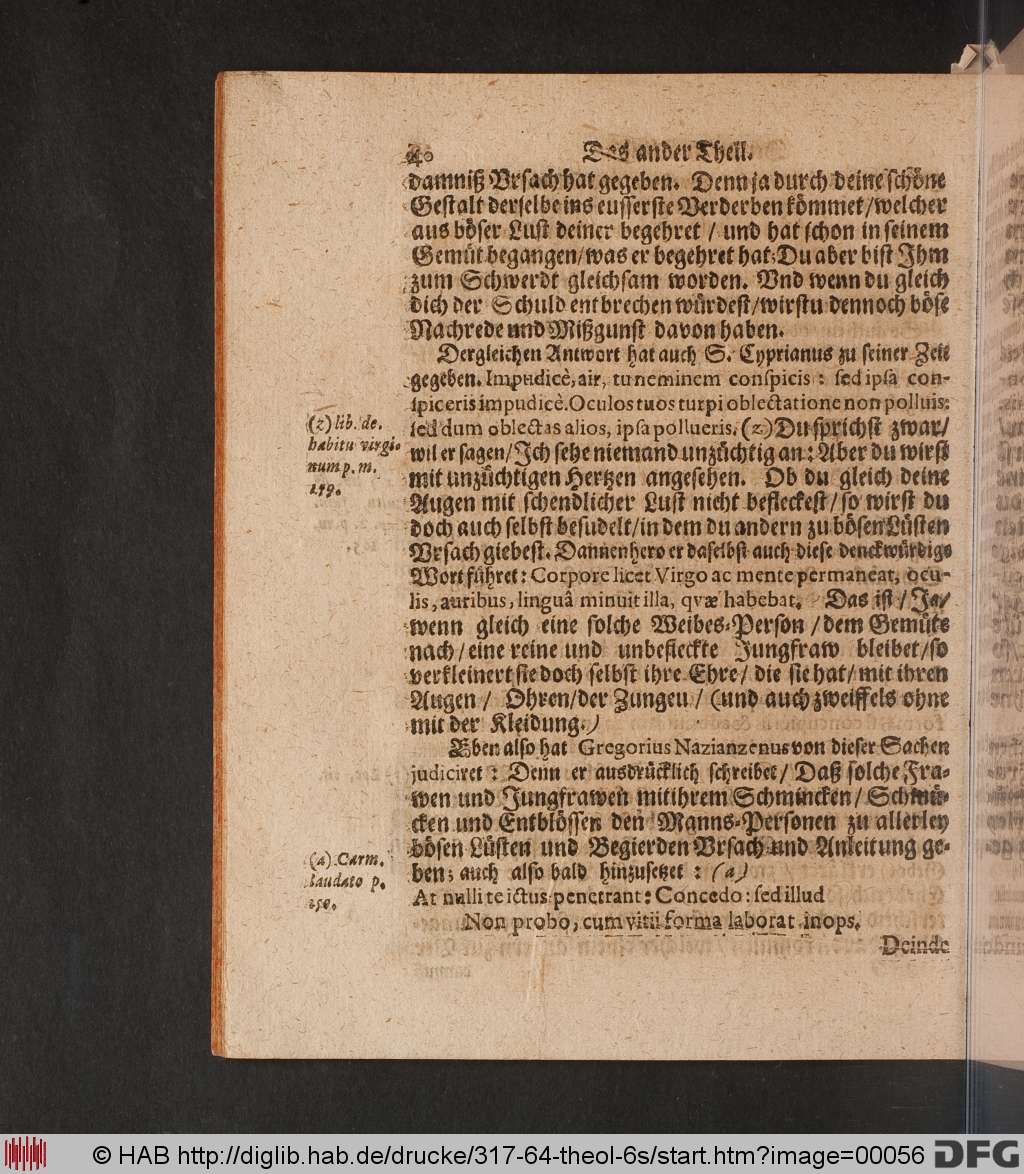 40 Das ander Theil.
damniß Vrsach hat gegeben. Denn ja durch deine schöne
Gestalt derselbe ins eusserste Verderben kömmet/welcher
aus böser Lust deiner begehret / und hat schon in seinem
Gemüt begangen/was er begehret hat; Du aber bist Ihm
zum Schwerdt gleichsam worden. Vnd wenn du gleich
dich der Schuld entbrechen würdest/wirstu dennoch böse
Nachrede und Mißgunst davon haben.
Dergleichen Antwort hat auch S. Cyprianus zu seiner Zeit
gegeben. Impudicè, air, tu neminem conspicis : sed ipsa con-
spiceris impudicè. Oculos tuos turpi oblectatione non polluis:
sed dum oblectas alios, ipsa pollueris. (z) Du sprichst zwar/
(z) lib. de.
habitu virgi-
num p. m.
159.
wil er sagen/Ich sehe niemand unzüchtig an: Aber du wirst
mit unzüchtigen Hertzen angesehen. Ob du gleich deine
Augen mit schendlicher Lust nicht befleckest/so wirst du
doch auch selbst besudelt/in dem du andern zu bösen Lüsten
Vrsach giebest. Dannenhero er daselbst auch diese denckwürdige
Wort führet: Corpore licet Virgo ac mente permaneat, ocu-
lis, auribus, linguâ minuit illa, qvæ habebat. Das ist / Ja/
wenn gleich eine solche Weibes-Person / dem Gemüte
nach/eine reine und unbefleckte Jungfraw bleibet/so
verkleinert sie doch selbst ihre Ehre/ die sie hat/ mit ihren
Augen / Ohren/der Zungen / (und auch zweiffels ohne
mit der Kleidung.)
Eben also hat Gregorius Nazianzenus von dieser Sachen
judiciret : Denn er ausdrücklich schreibet/ Daß solche Fra-
wen und Jungfrawen mit ihrem Schmincken/ Schmü-
cken und Entblössen den Manns-Personen zu allerley
bösen Lüsten und Begierden Vrsach und Anleitung ge-
ben; auch also bald hinzusetzet : (a)
(a) Carm.
laudato p.
250.
At nulli te ictus penetrant: Concedo: sed illud
Non probo, cum vitii forma laborat inops.
Deinde
© HAB http://diglib.hab.de/drucke/317-64-theol-6s/start.htm?image=00056
DFG